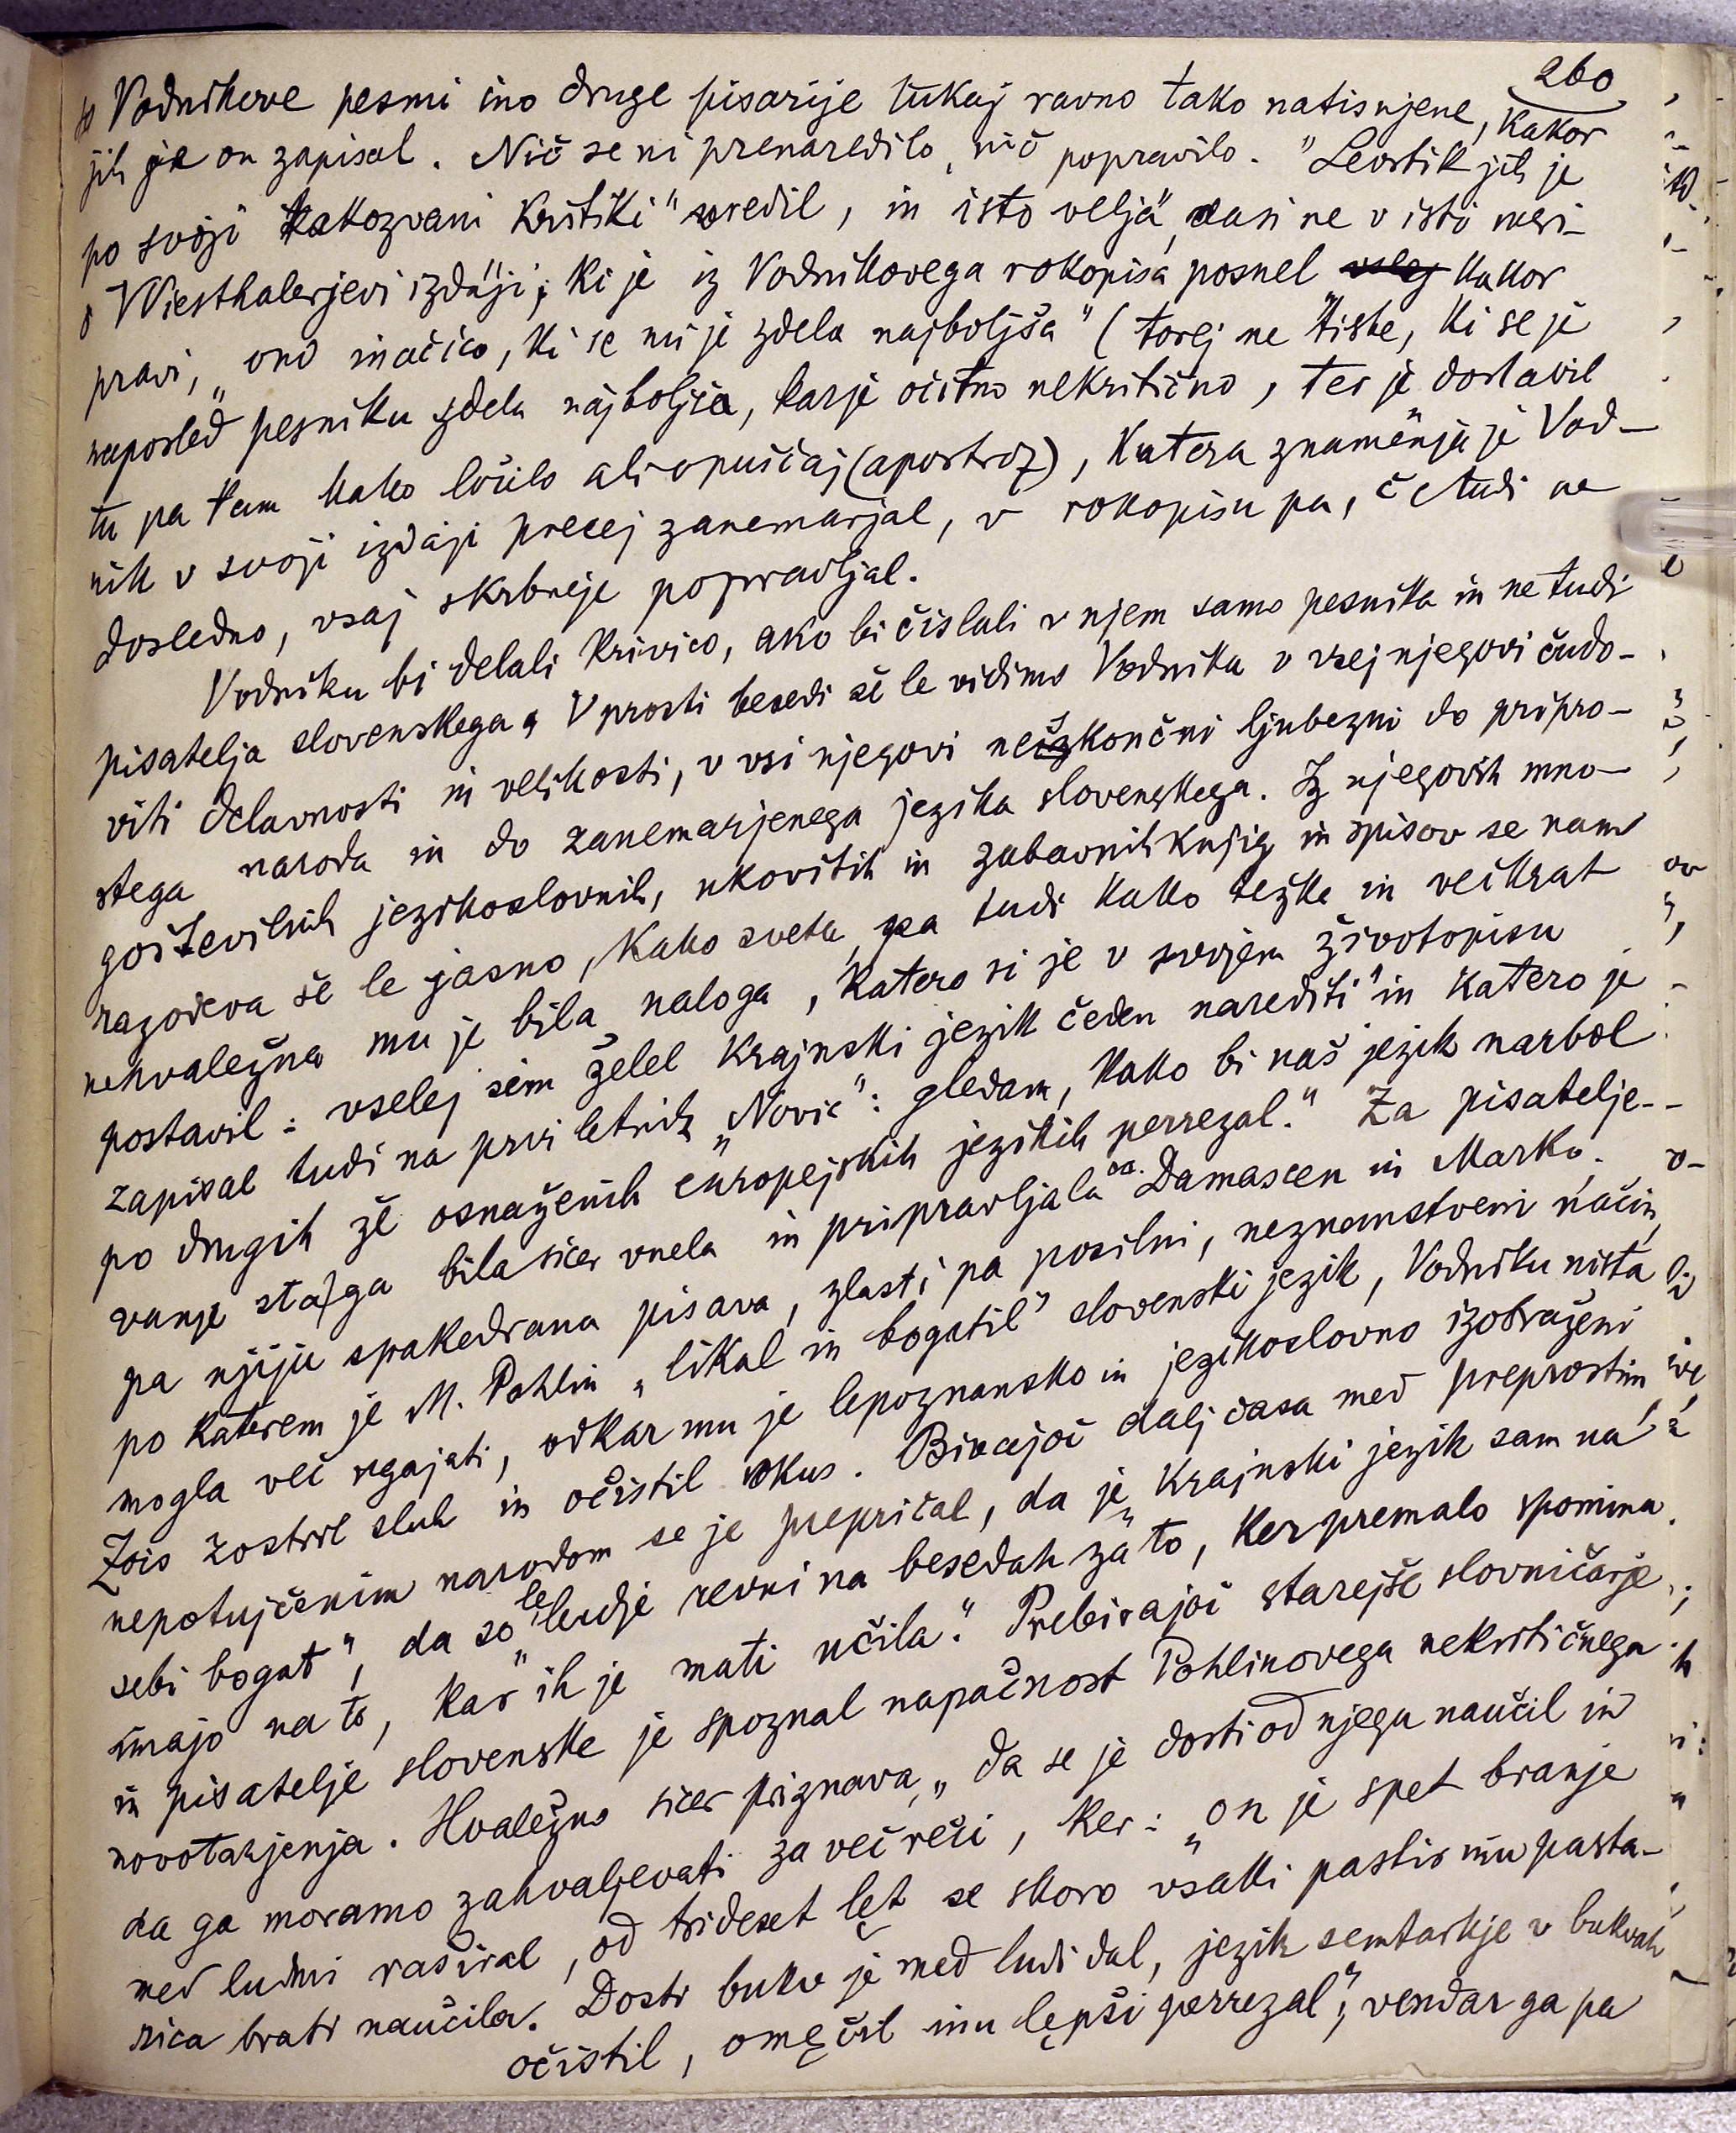 260
so Vodnikove pesmi ino druge pisarije tukaj ravno tako natisnjene, kakor
jih je on zapisal. Nič se ni prenaredilo, nič popravilo. "Levstik jih je
po svoji takozvani kritiki" uredil, in isto velja, dasi ne v isti meri
o Wiesthalerjevi izdaji, ki je iz Vodnikovega rokopisa posnel kakor
pravi, „ono inačico, ki se mi je zdela najboljša" (torej ne tiste, ki se je
naposled pesniku zdela najboljša, kar je očitno nekritično, ter je dostavil
tu pa tam kako ločilo ali opuščaj (apostrof), katera znamenja je Vod-
nik v svoji izdaji precej zanemarjal, v rokopisu pa, če tudi ne
dosledno, vsaj skrbneje popravljal.
Vodniku bi delali krivico, ako bi čislali v njem samo pesnika in ne tudi
pisatelja slovenskega. V prosti besedi še le vidimo Vodnika v vsej njegovi čudo-
viti delavnosti in velikosti, v vsi njegovi neskončni ljubezni do pripro-
stega naroda in do zanemarjenega jezika slovenskega. Iz njegovih mno-
goštevilnih jezikoslovnih, ukovitih in zabavnih knjig in spisov se nam
razodeva še le jasno, kako sveta, pa tudi kako težka in večkrat
nehvaležna mu je bila naloga, katero si je v svojem životopisu
postavil: vselej sim želel krajnski jezik čeden narediti" in katero je
zapisal tudi na prvi letnik „Novic": gledam, kako bi naš jezik narbol
po drugih že osnaženih europejskih jezikih perrezal." Za pisatelje-
vanje sta ga bila sicer vnela in pripravljala oa. Damascen in Marko.
pa njiju spakedrana pisava, zlasti pa posilni, neznanstveni način,
po katerem je M. Pohlin „likal in bogatil" slovenski jezik, Vodniku nista
mogla več ugajati, odkar mu je lepoznansko in jezikoslovno izobraženi
Zois zostril sluh in očistil okus. Bivajoč dalj časa med preprostim
nepotujčenim narodom se je prepričal, da je „krajnski jezik sam na
sebi bogat", da so le „ludje revni na besedah zato, ker premalo spomina
imajo na to, kar ih je mati učila." Prebirajoč starejše slovničarje
in pisatelje slovenske je spoznal napačnost Pohlinovega nekritičnega
novotarjenja. Hvaležno sicer priznava, „da se je dosti od njega naučil in
da ga moramo zahvaljevati za več reči, ker: „on je spet branje
med ludmi raširal, od trideset lęt se skoro vsaki pastir inu pasta-
rica brati naučila. Dosti bukv je med ludi dal, jezik semtertje v bukvah
očistil, omęčil inu lępši perrezal", vendar ga pa